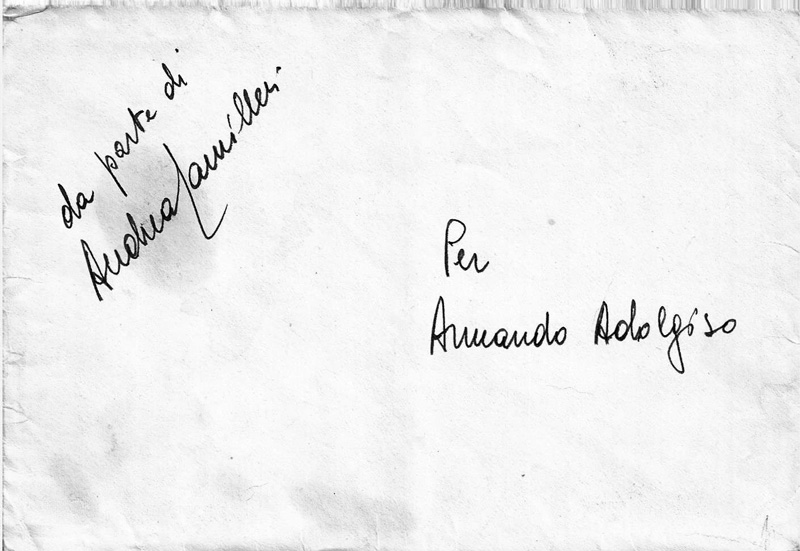 da parte di
Andrea Camilleri
Per
Armando Adolgiso